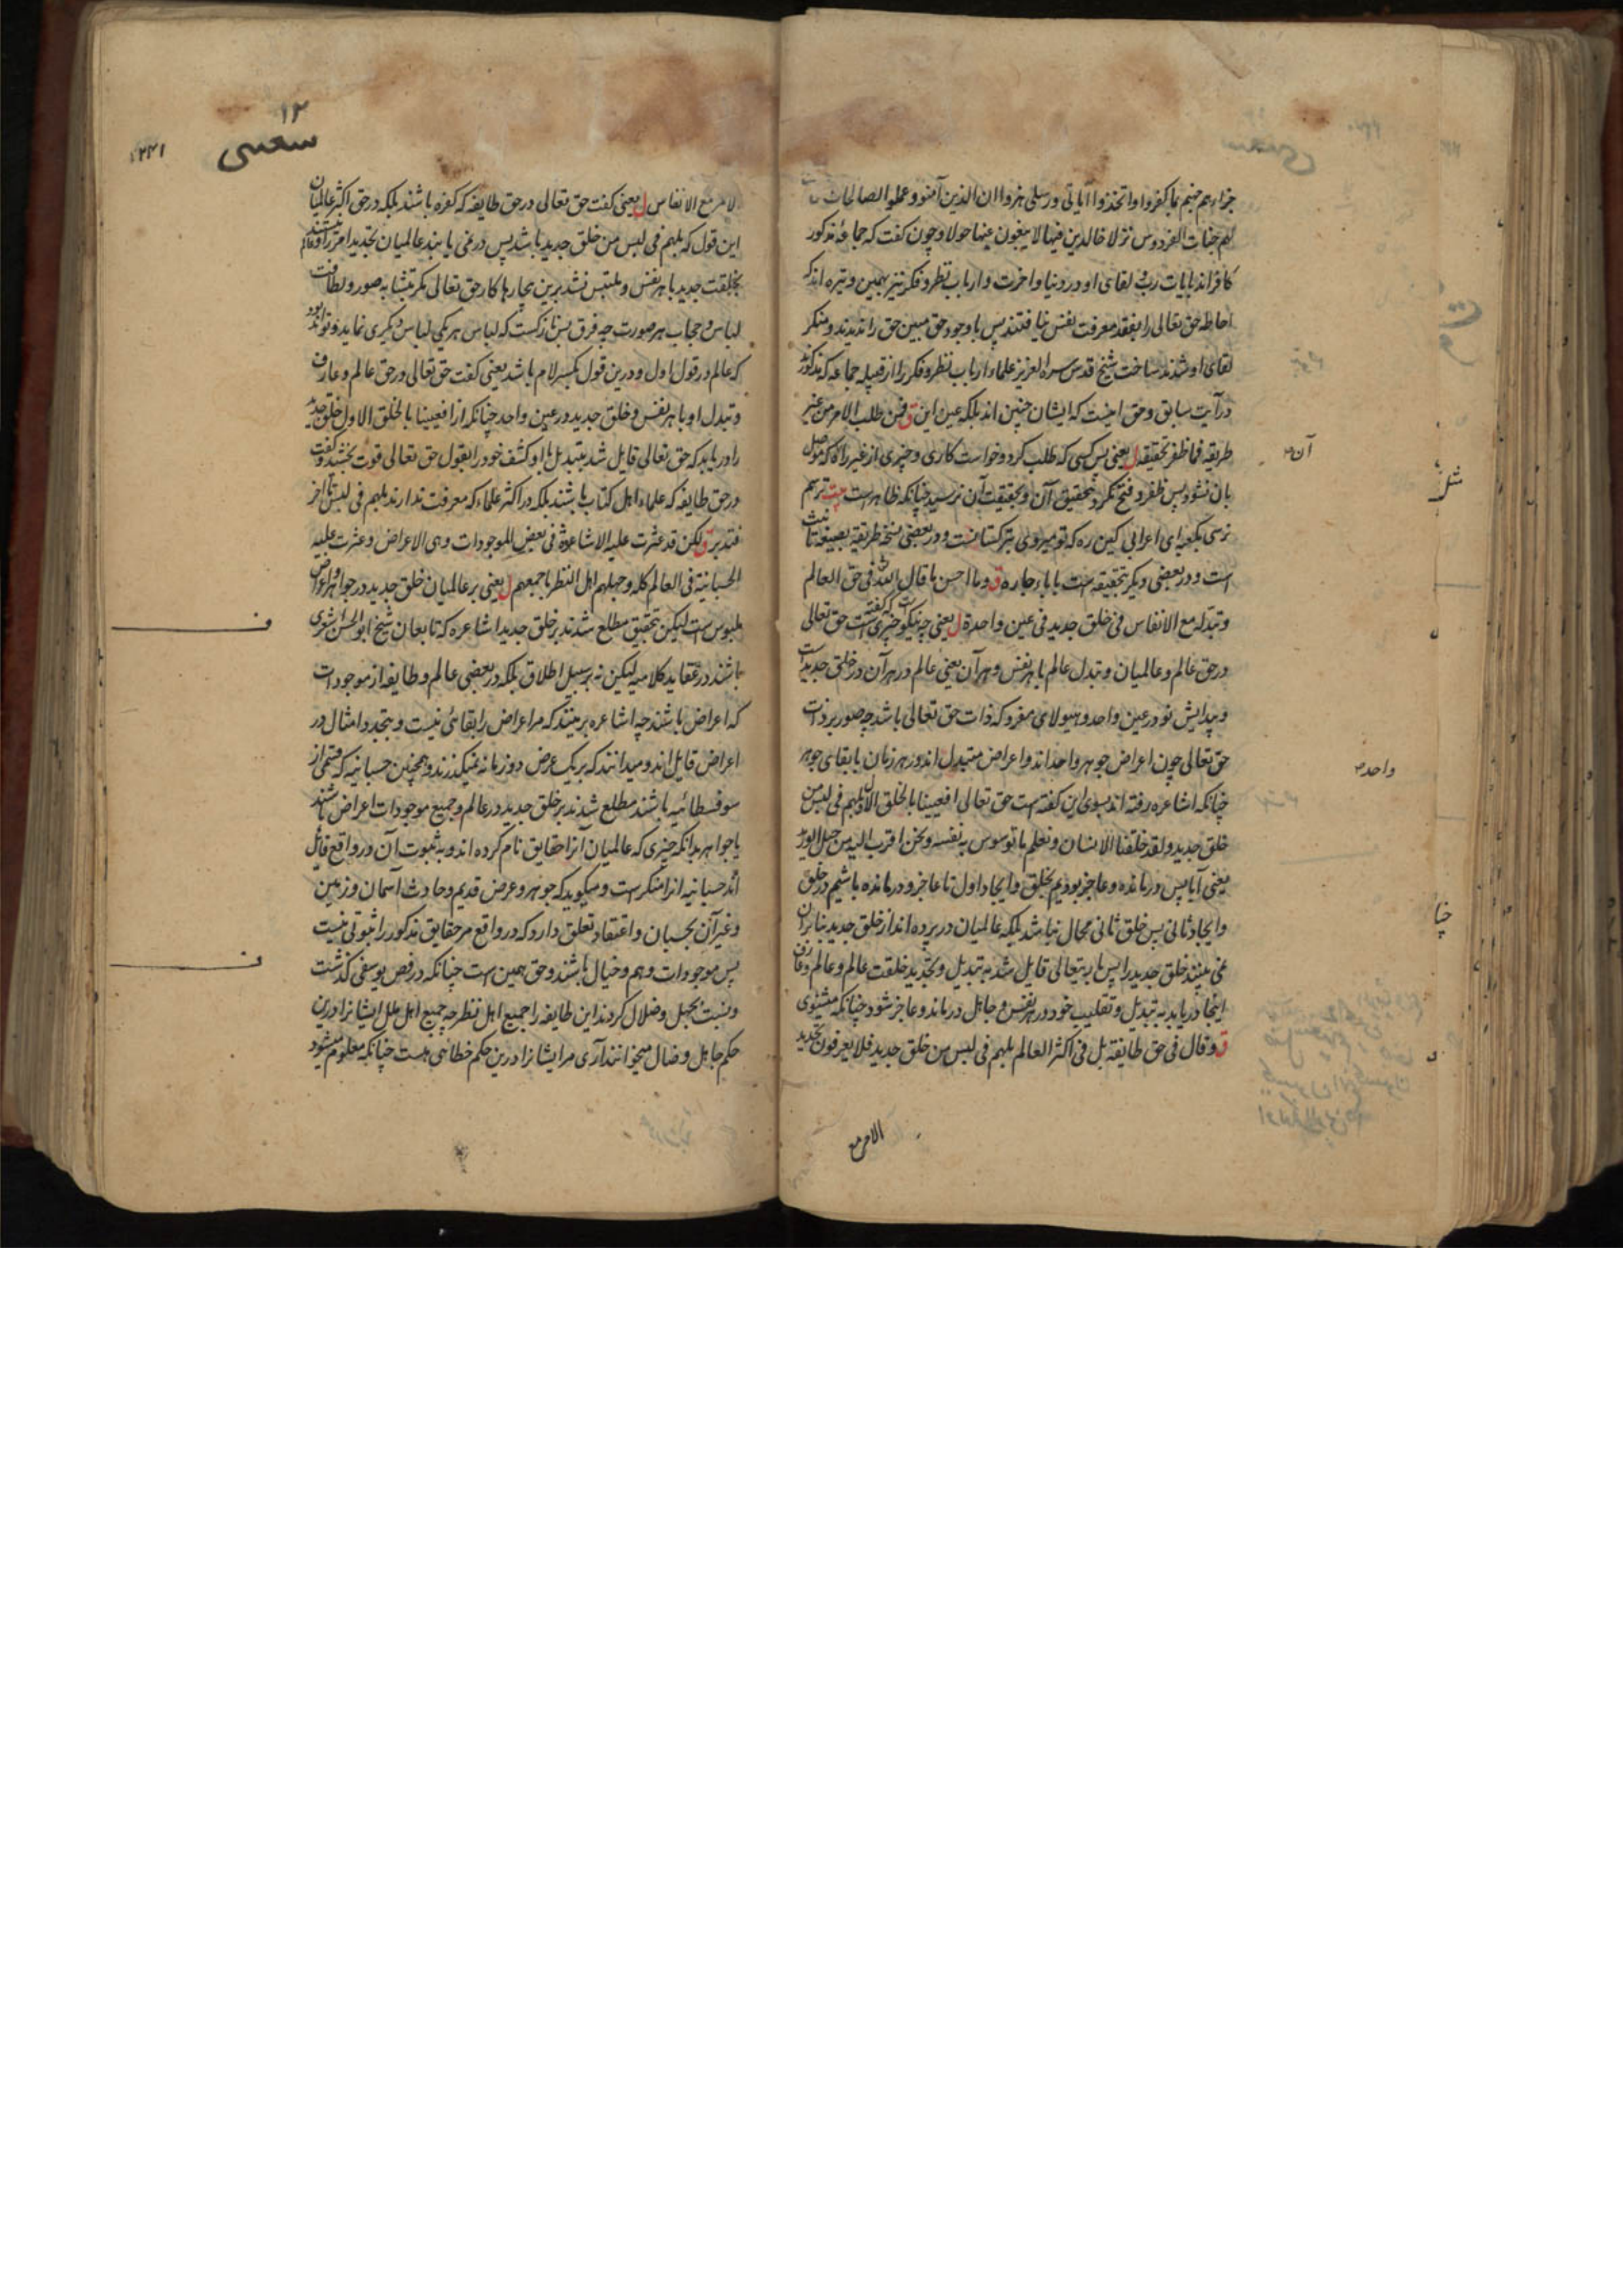 جزاءهم جهنم بما کفروا واتخذوا آیاتی ورسلی هزوا ان الذین آمنو وعملو الصالحات
لهم جنات الفردوس نزلا خالدین فیها لا یبغون عنها حولا و چون کفت که جماعه مذکور
کافراند بایات رب و لقای او در دنیا و اخرت و ارباب نظر و فکر نیز بهمین وتیره اند که
احاطه حق تعالی را بفقد معرفت نفس نیافتند پس باوجود حق مبین حق را ندیدند و منکر
لقای او شدند ساخت شیخ قدس سره العزیز علماء ارباب نظر و فکر را از قبیله جماعه که مذکور
در آیت سابق وحق اینست که ایشان چنین اند بلکه عین این ق فمن طلب الامر من غیر
طریقه فما ظفر بتحقیقه ل یعنی پس کسی که طلب کرد و خواست کاری و چیزی از غیر راه که موصل
بان نشود پس ظفر و فتح نکرد بتحقیق آن و بحقیقت آن نرسید چنانکه ظاهر است بیت ترسم
نرسی بکعبه ای اعرابی کین ره که تو میروی بترکستانست و در بعضی نسخه طریقة بصیغه تانیث
است و در بعضی دیگر بتحقیقه است با باء جاره ق وما احسن ما قال الله فی حق العالم
وتبدله مع الانفاس فی خلق جدید فی عین واحدة ل یعنی چه نیکو چیزی است که گفته است حق تعالی
در حق عالم و عالمیان و تبدل عالم با هر نفس و هر آن یعنی عالم در هر آن در خلق جدید است
و پیدایش نو در عین واحد و هیولای مفرد که ذات حق تعالی باشد چه صور بر ذات
حق تعالی چون اعراض جوهر واحد اند و اعراض متبدل اند در هر زمان با بقای جوهر
چنانکه اشاعره رفته اند بسوی این کفته است حق تعالی افعیینا بالخلق الاول بل هم فی لبس من
خلق جدید ولقد خلقنا الانسان ونعلم ما توسوس به نفسه ونحن اقرب الیه من حبل الورید
یعنی آیا پس درمانده و عاجز بودیم بخلق و ایجاد اول تا عاجز و درمانده باشیم در خلق
و ایجاد ثانی پس خلق ثانی محال نباشد بلکه عالمیان در پرده اند از خلق جدید بنابران
نمی بینند خلق جدید را پس باریتعالی قایل شد به تبدیل و تجدید خلقت عالم و عالم و عارف
اینجا دریابد به تبدیل و تقلیب خود در هر نفس و جاهل درماند و عاجز شود چنانکه مثنوی
ق وقال فی حق طایفة بل فی اکثر العالم بل هم فی لبس من خلق جدید فلا یعرفون تجدید
الامر
آن
واحد
چنا
۱۲
۲۲۱
الامر مع الانفاس ل یعنی کفت حق تعالی در حق طایفه که کفره باشند بلکه در حق اکثر عالمیان
این قول که بل هم فی لبس من خلق جدید باشد پس در نمی یابند عالمیان تجدید امر را
بخلقت جدید با هر نفس و ملتبس نشد برین بیچارها کار حق تعالی مکر بتشابه صور و لطافت
لباس و حجاب هر صورت چه فرق بس نازکست که لباس هر یکی لباس دیگری نماید و تواند بود
که عالم در قول اول و درین قول بکسر لام باشد یعنی کفت حق تعالی در حق عالم و عارف
و تبدل او با هر نفس و خلق جدید در عین واحد چنانکه از افعیینا بالخلق الاول خلق جدید
را دریابد که حق تعالی قایل شد بتبدل ما و کشف خود را بقول حق تعالی قوت بخشید و کفت
در حق طایفه که علماء اهل کتاب باشند بلکه در اکثر علماء که معرفت ندارند بل هم فی لبس تا آخر
فتدبر ق لکن قد عثرت علیه الاشاعرة فی بعض الموجودات وهی الاعراض وعثرت علیه
الحسبانیة فی العالم کله وجهلهم اهل النظر باجمعهم ل یعنی بر عالمیان خلق جدید در جواهر و اعراض
ملبوس است لیکن بتحقیق مطلع شدند بر خلق جدید اشاعره که تابعان شیخ ابو الحسن اشعری
باشند در عقاید کلامیه لیکن نه بر سبیل اطلاق بلکه در بعضی عالم و طایفه از موجودات
که اعراض باشند چه اشاعره برینند که مر اعراض را بقائی نیست و بتجدد امثال در
اعراض قایل اند و میدانند که بر یک عرض دو زمانه نمیکذرند و همچنین حسبانیه که قسمی از
سوفسطائیه باشند مطلع شدند بر خلق جدید در عالم و جمیع موجودات اعراض باشند
یا جواهر بدانکه چیزی که عالمیان آنرا حقایق نام کرده اند و به ثبوت آن در واقع قائل
اند حسبانیه انرا منکر است و میکوید که جوهر و عرض قدیم و حادث آسمان و زمین
و غیر آن بحسبان و اعتقاد تعلق دارد که در واقع مر حقایق مذکور را ثبوتی نیست
پس موجودات وهم و خیال باشند و حق همین است چنانکه در فص یوسفی کذشت
و نسبت بجهل و ضلال کردند این طایفه را جمیع اهل نظر چه جمیع اهل ملل ایشانرا درین
حکم جاهل و ضال میخوانند آری مر ایشانرا درین حکم خطا هی هست چنانکه معلوم میشود